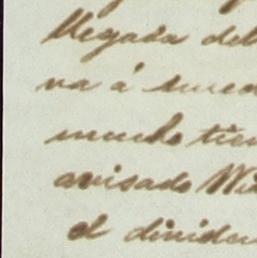 llegada del
va á
mucho tiem
avisado Wi
el dividen